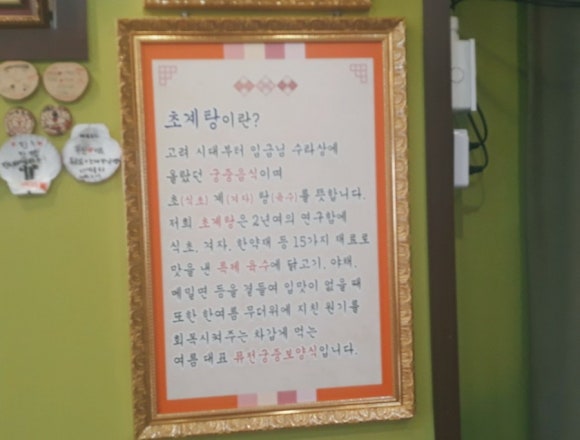 초계탕이란?
고려 시대부터 임금님 수라상에
올랐던 궁중음식이며
초(식초) 계(겨자) 탕(육수)를 뜻합니다.
저희 초계탕은 2년여의 연구함에
식초, 겨자, 한약재 등 15가지 재료로
맛을 낸 특제 육수에 닭고기, 야채,
메밀면 등을 곁들여 입맛이 없을 때
또한 한여름 무더위에 지친 원기를
회복시켜주는 차갑게 먹는
여름 대표 류전궁중보양식입니다.